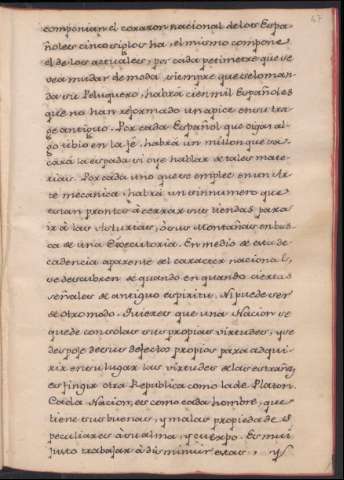 47
componian el corazon nacional de los Espa-
ñoles cinco siglos ha, el mismo compone
el de los actuales; por cada petimetre que se
vea mudar de moda siempre que se lo man-
da su Peluquero, habrá cien mil Españoles
que no han reformado un apice en su tra-
ge antiguo. Por cada Español que oigan al-
go tibio en la fé, habrá un millon que sa-
cará la espada si oye hablar de tales mate-
rias. Por cada uno que se emplee en un Ar-
te mecánica, habrá un sinnumero que
estan prontos á cerrar sus tiendas para
ir á las Asturias, ó sus Montañas en bus-
ca de una Executoria. En medio de esta de-
cadencia aparente del caracter nacional,
se descubren de quando en quando ciertas
señales de antiguo espiritu. Ni puede ser
de otro modo. Querer que una Nacion se
quede con solas sus propias virtudes, y se
despoje de sus defectos propios para adqui-
rir en su lugar las virtudes de las estrañas,
es fingir otra Republica como la de Platon.
Cada Nacion, es como cada hombre, que
tiene sus buenas, y malas propiedades
peculiares á su alma y cuerpo. Es mui
justo trabajar á disminuir estas, y